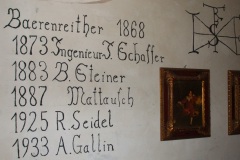 Baerenreither 1868
1873 Ingenieur J. Schaffer
1883 B. Steiner
1887 Mattausch
1925 R. Seidel
1933 A. Gallin